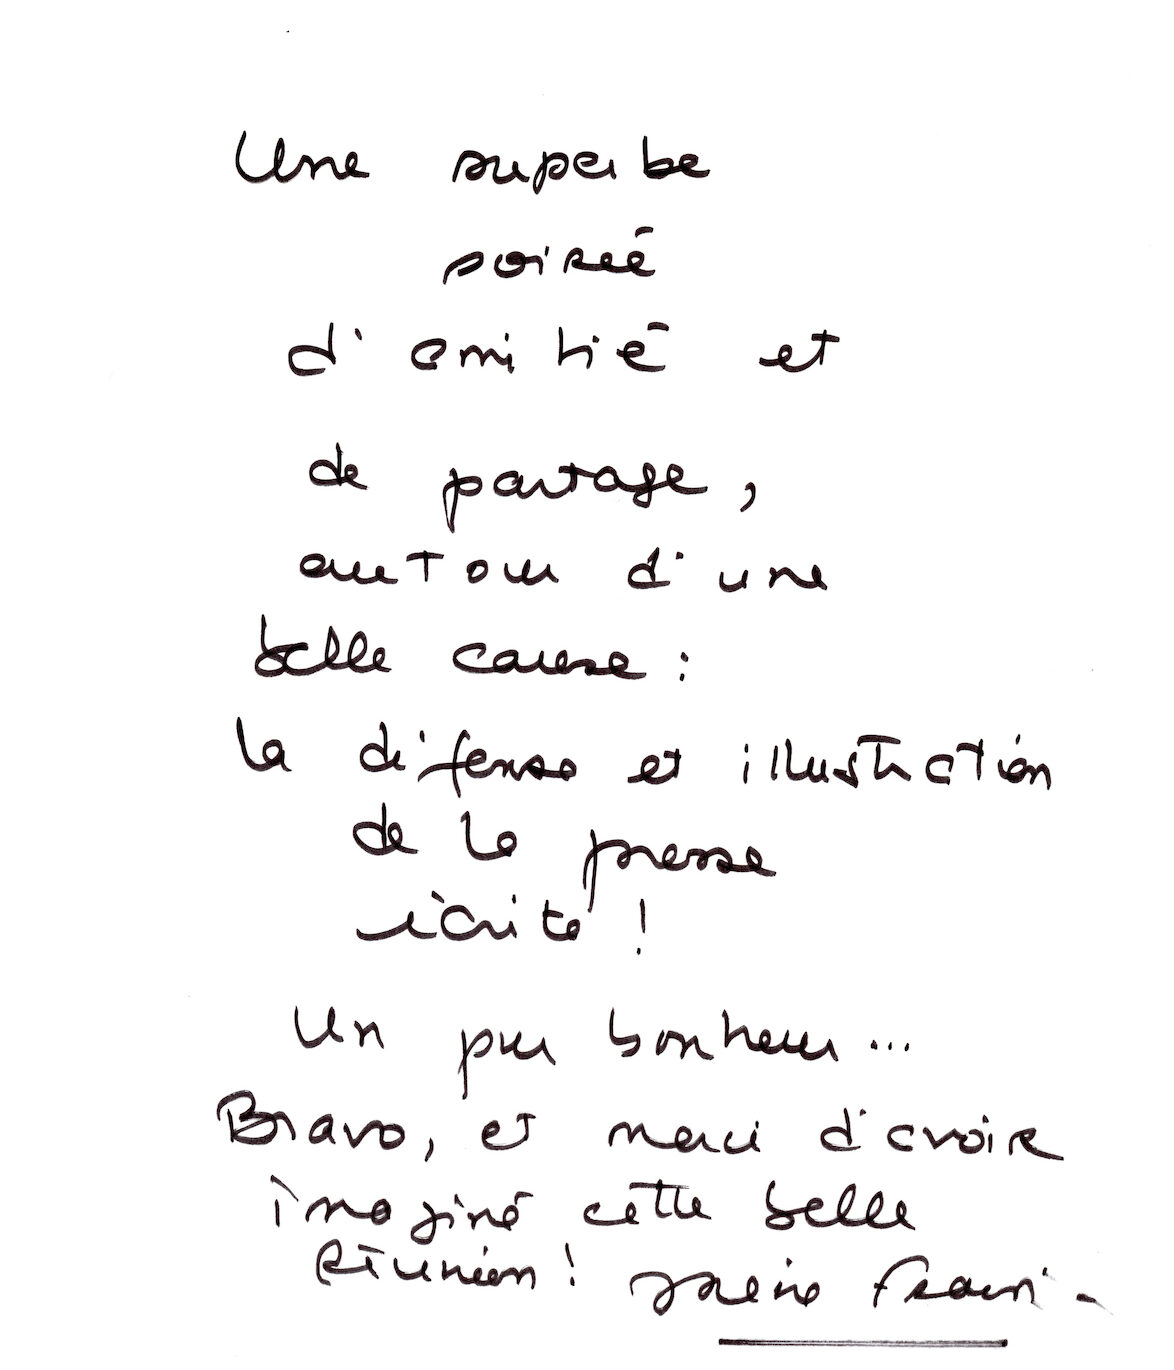 Une superbe
soirée
d'amitié et
de partage,
autour d'une
belle cause :
la défense et illustration
de la presse
écrite !
Un pur bonheur...
Bravo, et merci d'avoir
imaginé cette belle
réunion !